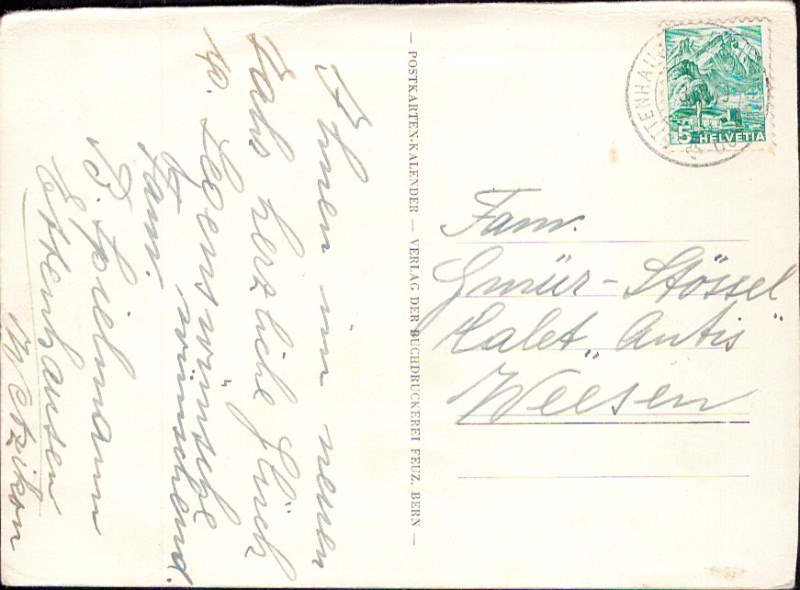 Ihnen im neuen
Jahr herzliche Glück
u. Segenswünsche
wünschend.
Fam.
B. Spielmann
Ettenhausen
Wetzikon
— POSTKARTEN-KALENDER — VERLAG DER BUCHDRUCKEREI FEUZ, BERN —
5 HELVETIA
Fam.
Gmür-Stössel
Halet „Antis"
Weesen